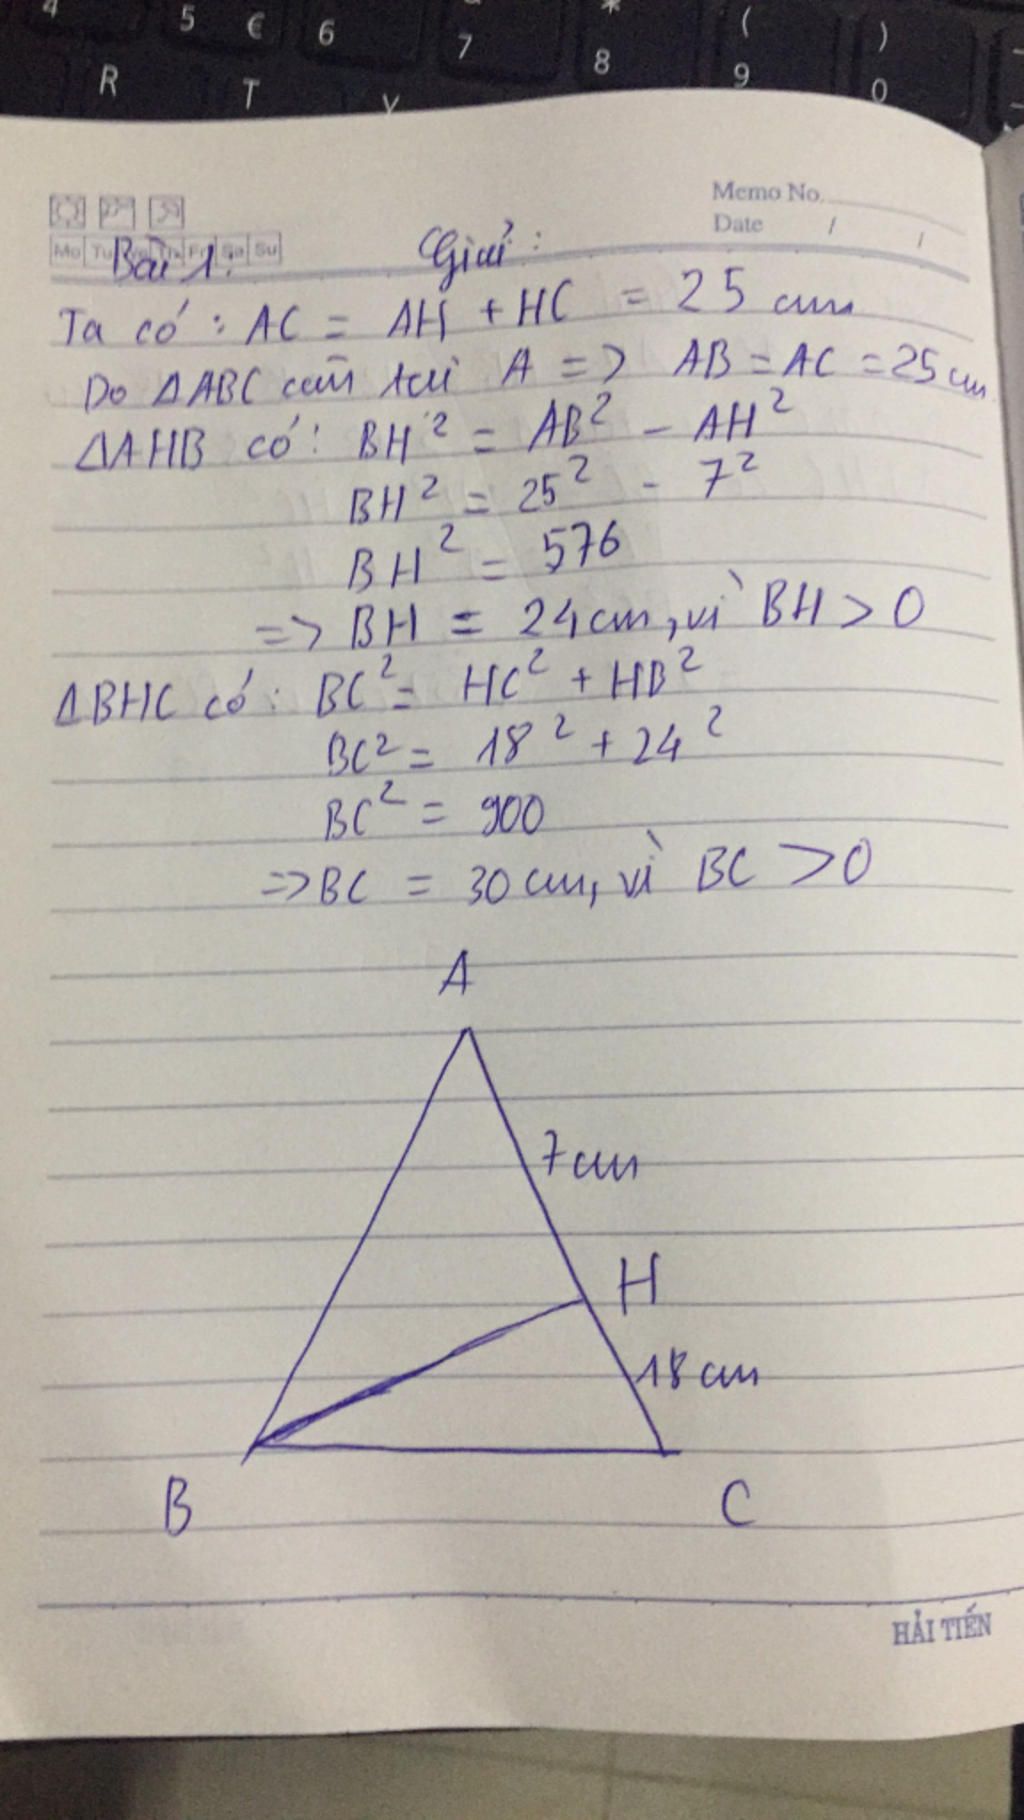 4 5 € 6 7 * 8 ( 9 ) 0
R T Y
Memo No.
Date / /
Mo Tu We Th Fr Sa Su
Bài 1: Giải:
Ta có: AC = AH + HC = 25 cm
Do ΔABC cân tại A => AB = AC = 25 cm
ΔAHB có: BH² = AB² - AH²
BH² = 25² - 7²
BH² = 576
=> BH = 24 cm, vì BH > 0
ΔBHC có: BC² = HC² + HB²
BC² = 18² + 24²
BC² = 900
=> BC = 30 cm, vì BC > 0
A
7 cm
H
18 cm
B C
HẢI TIẾN